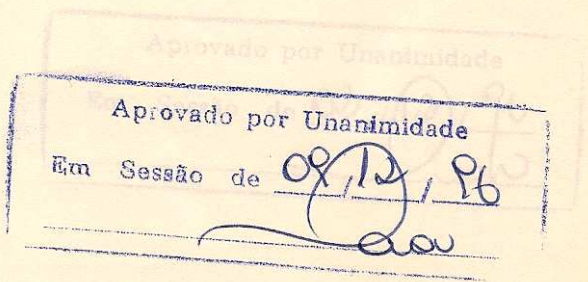 Aprovado por Unanimidade
Aprovado por Unanimidade
Em Sessão de 09/12/96